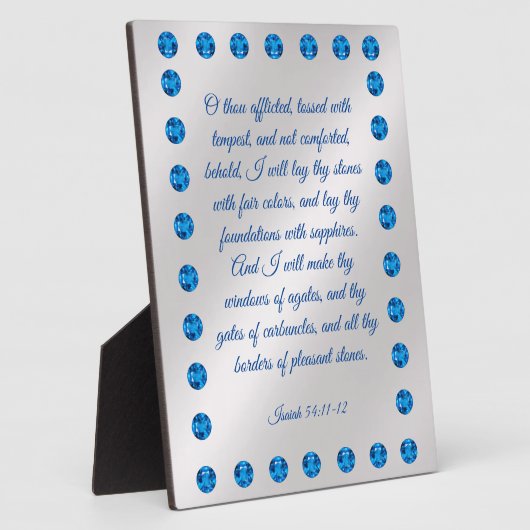 O thou afflicted, tossed with
tempest, and not comforted,
behold, I will lay thy stones
with fair colors, and lay thy
foundations with sapphires.
And I will make thy
windows of agates, and thy
gates of carbuncles, and all thy
borders of pleasant stones.
Isaiah 54:11-12